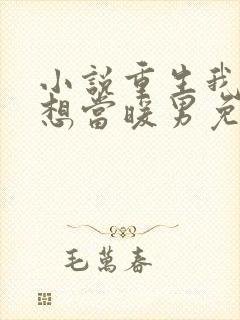 小說重生我
想當暖男免
毛萬春